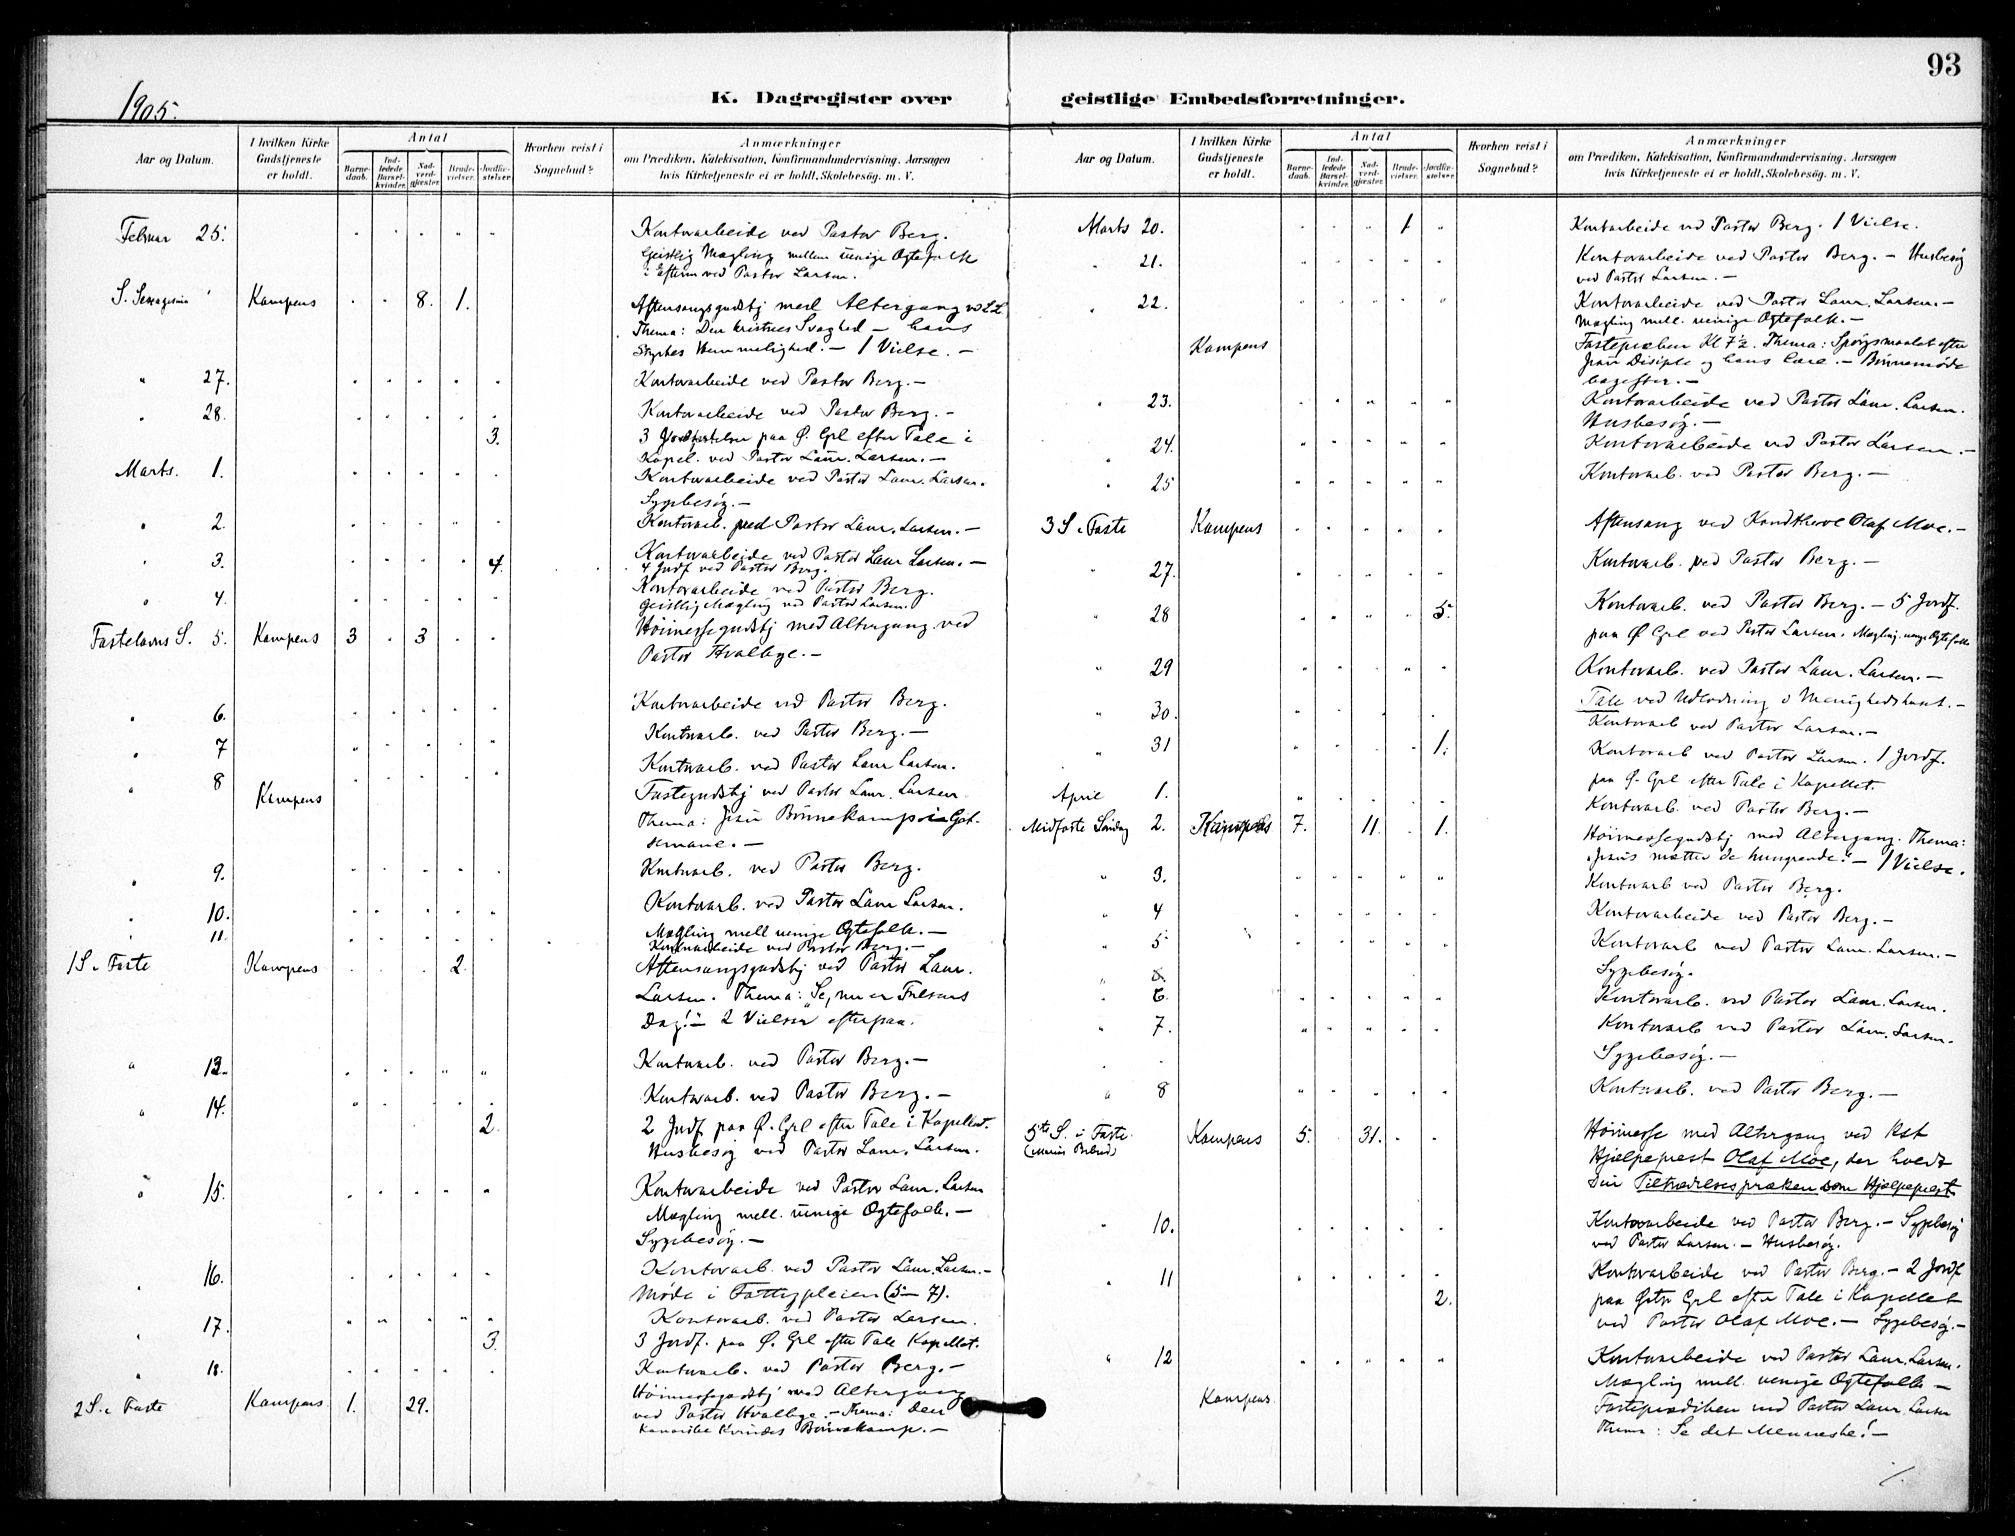 93
1905.
K. Dagregister over geistlige Embedsforretninger.
Aar og Datum.
I hvilken Kirke Gudstjeneste er holdt.
Antal
Barnedaab.
Indledede Barselkvinder.
Nadverdgjester.
Brudevielser.
Jordfæstelser.
Hvorhen reist i Sognebud?
Anmærkninger
om Prædiken, Katekisation, Konfirmandundervisning, Aarsagen
hvis Kirketjeneste ei er holdt, Skolebesøg. m. V.
Februar 25. Kontorarbeide ved Pastor Berg.
Geistlig Mægling mellem uenige Ægtefolk
i Efterm ved Pastor Larsen.
S. Sexagesima Kampens 8. 1. Aftensangsgudstj med Altergang v L.L.
Thema: Den kristnes Svaghed — hans
Styrkes Hemmelighed. — 1 Vielse. —
" 27. Kontorarbeide ved Pastor Berg. —
" 28. Kontorarbeide ved Pastor Berg. —
3. 3 Jordfæstelser paa Ø. Grl efter Tale i
Kapel. ved Pastor Laur. Larsen. —
Marts. 1. Kontorarbeide ved Pastor Laur. Larsen.
Sygebesøg. —
" 2. Kontorarb. ved Pastor Laur. Larsen. —
" 3. Kontorarbeide ved Pastor Laur Larsen. —
4. 4 Jordf ved Pastor Berg.
" 4. Kontorarbeide ved Pastor Berg.
Geistlig Mægling ved Pastor Larsen.
Fastelavns S. 5. Kampens 3 3 Høimessegudstj med Altergang ved
Pastor Hvalbye. —
" 6. Kontorarbeide ved Pastor Berg.
" 7 Kontorarb. ved Pastor Berg. —
" 8 Kontorarb. ved Pastor Laur Larsen.
Kampens Fastegudstj ved Pastor Laur. Larsen
Thema: Jesu Bønnekamp i Getsemane. —
" 9. Kontorarb. ved Pastor Berg.
" 10. Kontorarb. ved Pastor Laur Larsen.
Mægling mell uenige Ægtefolk. —
" 11. Kontorarbeide ved Pastor Berg. —
1 S. i Faste Kampens 2. Aftensangsgudstj ved Pastor Laur.
Larsen. Thema: "Se, nu er Frelsens
Dag!" — 2 Vielser efterpaa.
" 13. Kontorarb. ved Pastor Berg. —
" 14. Kontorarb. ved Pastor Berg. —
2. 2 Jordf paa Ø. Grl efter Tale i Kapellet.
Husbesøg ved Pastor Laur. Larsen.
" 15. Kontorarbeide ved Pastor Laur. Larsen
Mægling mell. uenige Ægtefolk. —
Sygebesøg. —
" 16. Kontorarb. ved Pastor Laur. Larsen. —
Møde i Fattigpleien (5 — 7).
" 17. Kontorarb. ved Pastor Larsen.
3. 3 Jordf. paa Ø. Grl efter Tale Kapellet.
" 18. Kontorarb. ved Pastor Berg. —
2 S. i Faste Kampens 1. 29. Høimessegudstj med Altergang
ved Pastor Hvalbye. — Thema: Den
kananæiske Kvindes Bønnekamp. —
Aar og Datum.
I hvilken Kirke Gudstjeneste er holdt.
Antal
Barnedaab.
Indledede Barselkvinder.
Nadverdgjester.
Brudevielser.
Jordfæstelser.
Hvorhen reist i Sognebud?
Anmærkninger
om Prædiken, Katekisation, Konfirmandundervisning, Aarsagen
hvis Kirketjeneste ei er holdt, Skolebesøg. m. V.
Marts 20. 1 Kontorarbeide ved Pastor Berg. 1 Vielse.
" 21. Kontorarbeide ved Pastor Berg. — Husbesøg
ved Pastor Larsen. —
" 22. Kontorarbeide ved Pastor Laur. Larsen. —
Mægling mell. uenige Ægtefolk. —
Kampens Fastepræken Kl 7½. Thema: Spørgsmaalet efter
Jesu Disiple og hans Lære. — Bønnemøde
bagefter. —
" 23. Kontorarbeide ved Pastor Laur. Larsen.
Husbesøg. —
" 24. Kontorarbeide ved Pastor Larsen. —
" 25 Kontorarb. ved Pastor Berg. —
3 S. i Faste Kampens Aftensang ved Kandtheol Olaf Moe. —
" 27. Kontorarb. ved Pastor Berg. —
" 28 5. Kontorarb. ved Pastor Berg. — 5 Jordf.
paa Ø Grl ved Pastor Larsen. Mægling. uenige Ægtefolk
" 29 Kontorarb. ved Pastor Laur. Larsen. —
Tale ved Utlodning i Menighedshuset. —
" 30. Kontorarb ved Pastor Larsen. —
" 31 1. Kontorarb ved Pastor Larsen. 1 Jordf.
paa Ø. Grl efter Tale i Kapellet.
April 1. Kontorarb. ved Pastor Berg. —
Midfaste Søndag 2. Kampens 7. 11. 1. Høimessegudstj med Altergang. Thema:
"Jesus mætter de hungrende." — 1 Vielse.
" 3. Kontorarb ved Pastor Berg.
" 4 Kontorarbeide ved Pastor Berg. —
" 5 Kontorarb ved Pastor Laur. Larsen. —
Sygebesøg.
" 6. Kontorarb. ved Pastor Laur. Larsen.
" 7. Kontorarb ved Pastor Laur. Larsen.
Sygebesøg. —
" 8 Kontorarb. ved Pastor Berg. —
5te S. i Faste Kampens 5. 31. Høimesse med Altergang ved Kst
(Mariæ Bebud) Hjælpeprest Olaf Moe, der holdt
Sin Tiltrædelsespræken som Hjælpeprest
" 10. Kontorarbeide ved Pastor Berg. — Sygebesøg
ved Pastor Larsen. — Husbesøg.
" 11 Kontorarbeide ved Pastor Berg. — 2 Jordf
2. paa Østr Grl efter Tale i Kapellet
ved Pastor Olaf Moe. — Sygebesøg. —
" 12 Kontorarbeide ved Pastor Laur. Larsen.
Mægling mell. uenige Ægtefolk —
Kampens Fasteprædiken ved Pastor Laur. Larsen
Thema: Se det Menneske! —